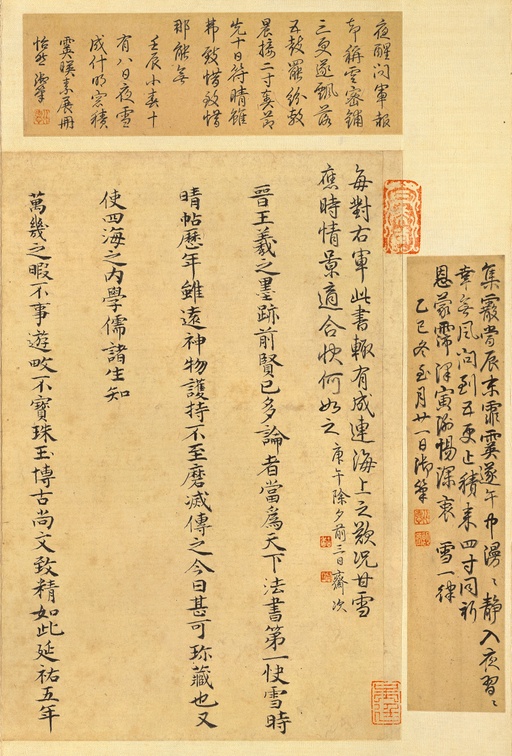 集霰當辰末霏霙遂午中漫〻靜入夜習〻
幸無風問到五更止積來四寸同祈
恩蒙霈澤寅惕深衷 雪一律
乙巳冬至月廿一日御筆
夜醒問軍報
却稱雲密鋪
三更遂飄落
五鼓羅紛敷
晨接二寸奏
先十日待晴雖
弗致惜致惜
那能無
壬辰小春十
有八日夜雪
成什明窓積
霙映素展冊
怡然 御筆
每對右軍此書輒有成連海上之歎況甘雪
應時情景適合快何如之 庚午除夕前三日齋次
晉王羲之墨跡前賢已多論者當為天下法書第一快雪時
晴帖歷年雖遠神物護持不至磨滅傳之今日甚可珎藏也又
使四海之內學儒諸生知
萬幾之暇不事遊畋不寶珠玉博古尚文致精如此延祐五年